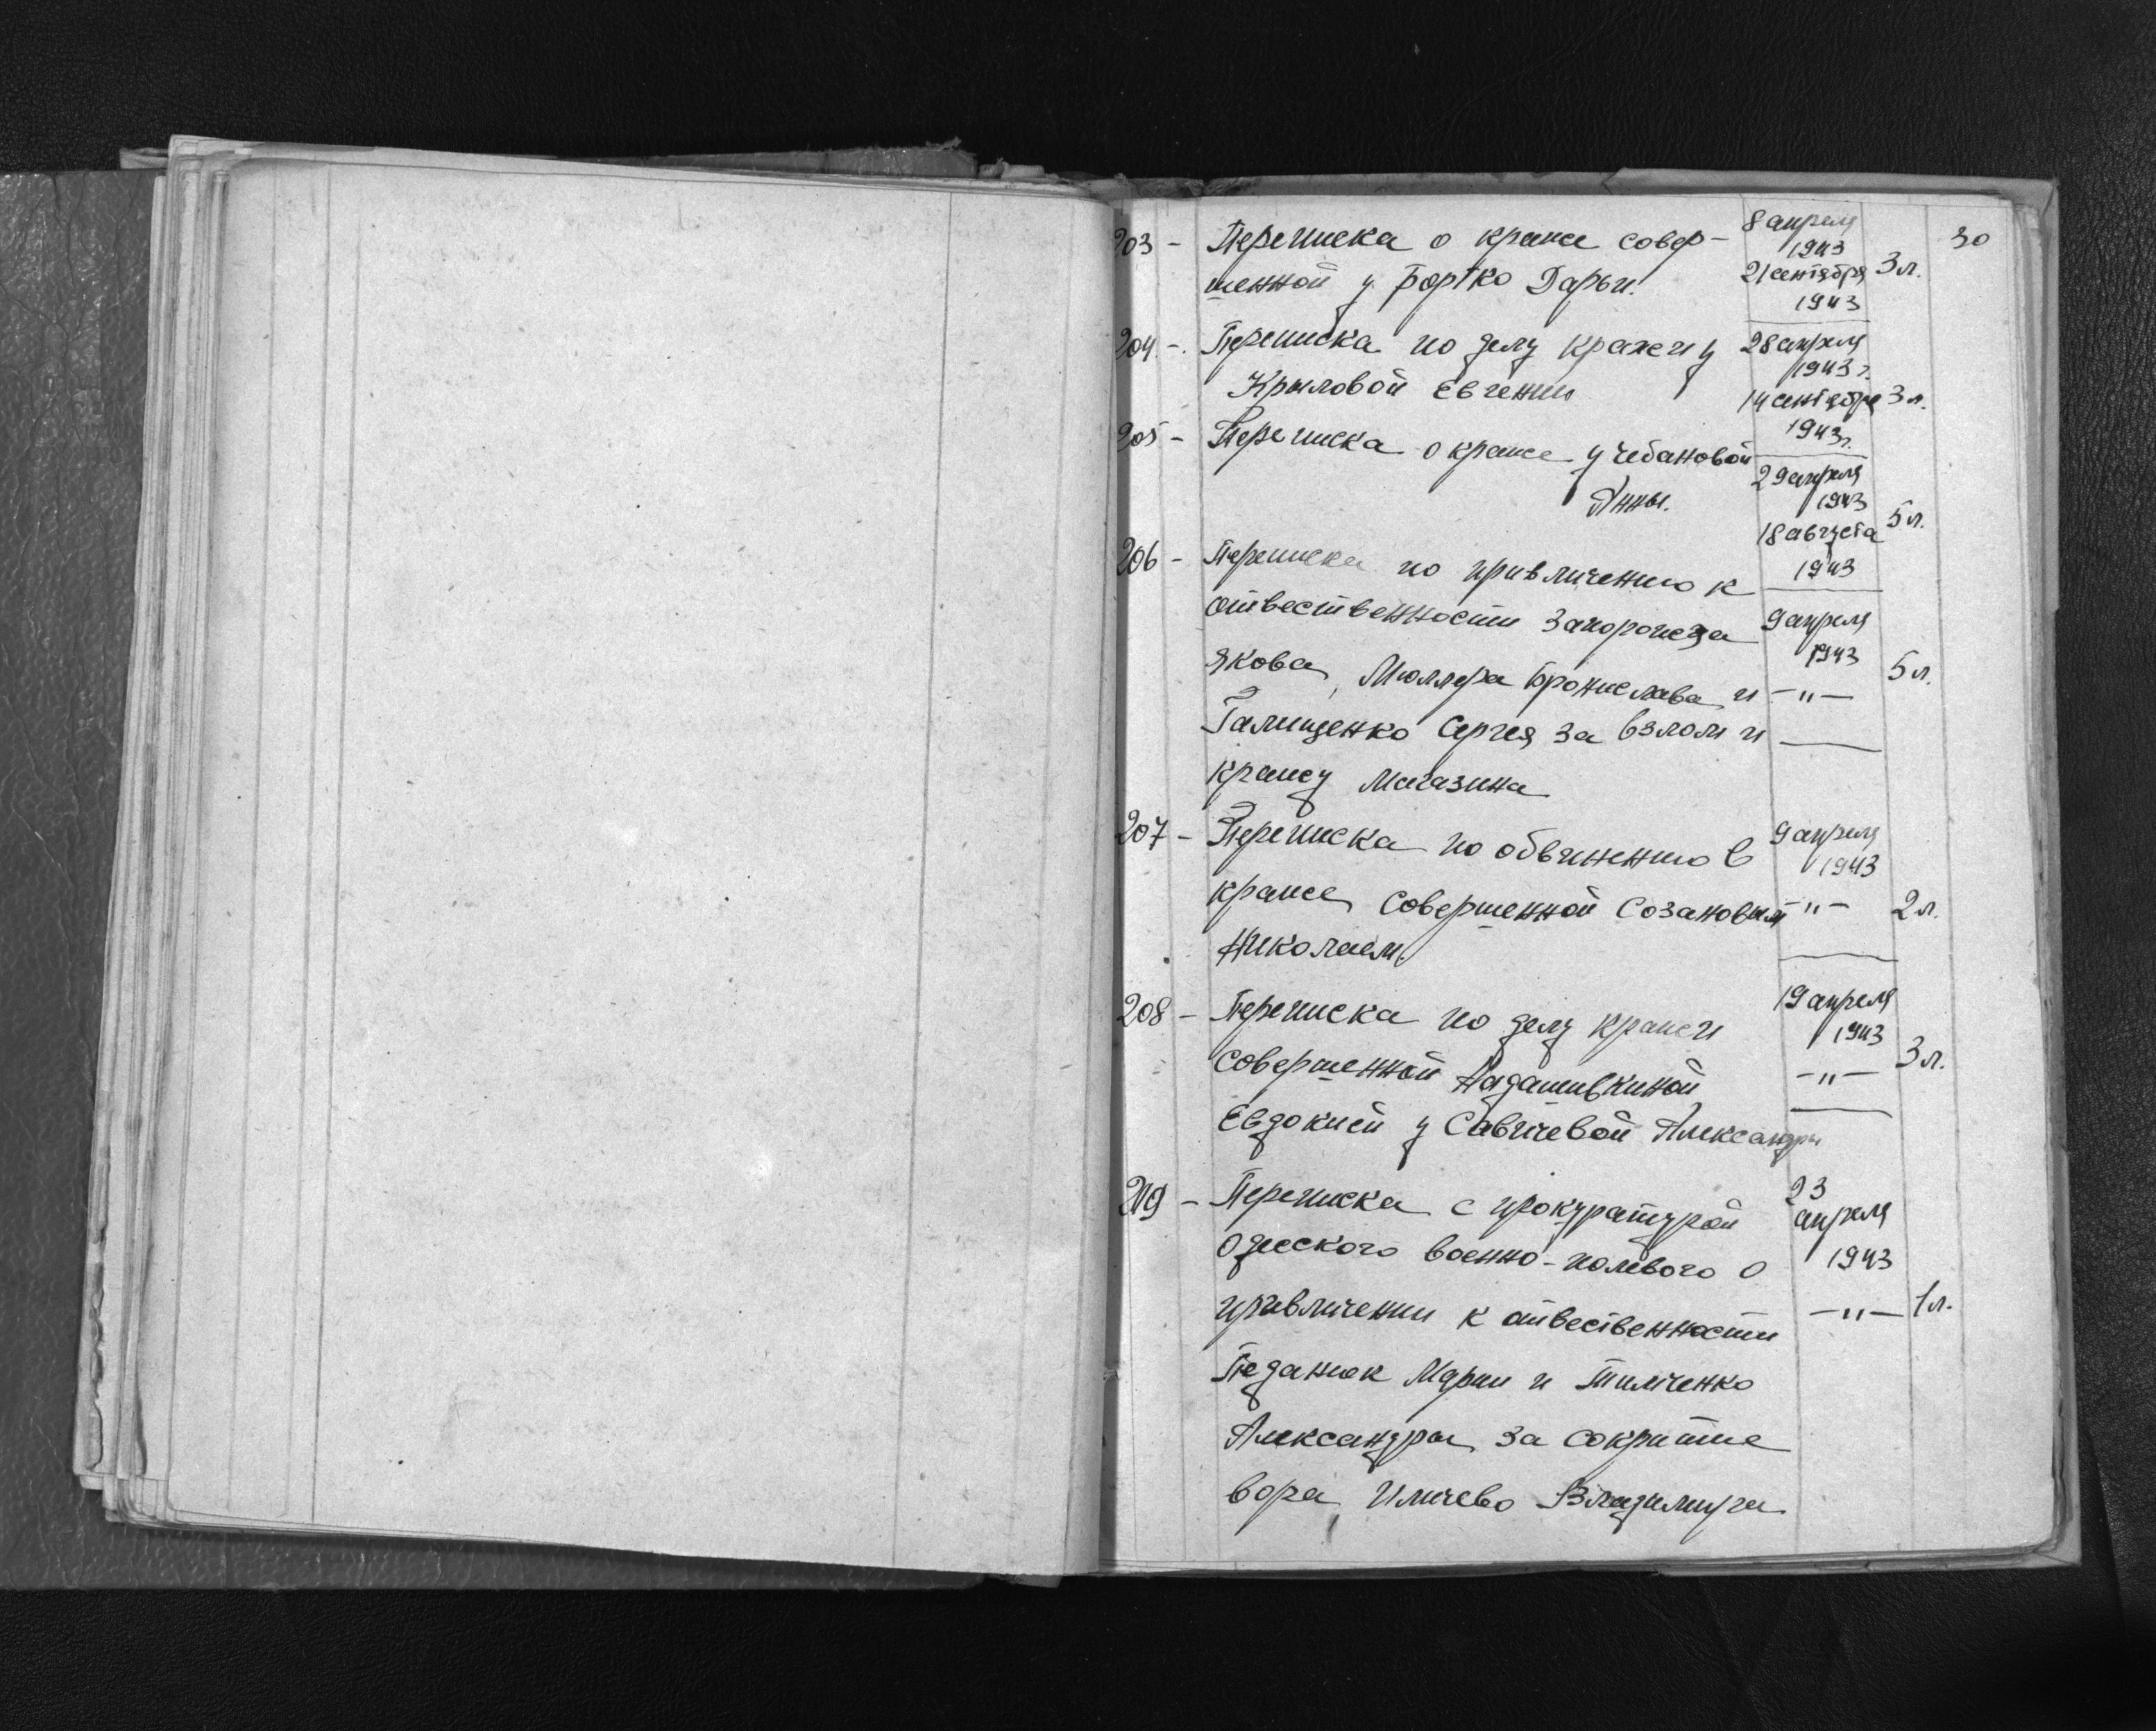 30
203 - Переписка о краже совер- 8 апреля 1943
шенной у Бортко Дарьи. 21 сентября 1943 3 л.
204 - Переписка по делу кражи у 28 апреля 1943 г.
Крыловой Евгении 14 сентября 1943 г. 3 л.
205 - Переписка о краже у Чебановой 29 апреля 1943
Анны. 18 августа 1943 5 л.
206 - Переписка по привлечению к
отвественности Запорожца 9 апреля 1943
Якова, Мюллера Бронислава и -"- 5 л.
Галищенко Сергея за взлом и
кражу магазина
207 - Переписка по обвинению в 9 апреля 1943
краже, совершенной Созановым -"- 2 л.
Николаем.
208 - Переписка по делу кражи 19 апреля 1943
совершенной -"- 3 л.
Евдокией у Савичевой Александры
209 - Переписка с прокуратурой 23 апреля
Одесского военно-полевого о 1943
привлечении к отвественности -"- 1 л.
Педанюк Марии и Тимченко
Александры за сокрытие
вора Владимира